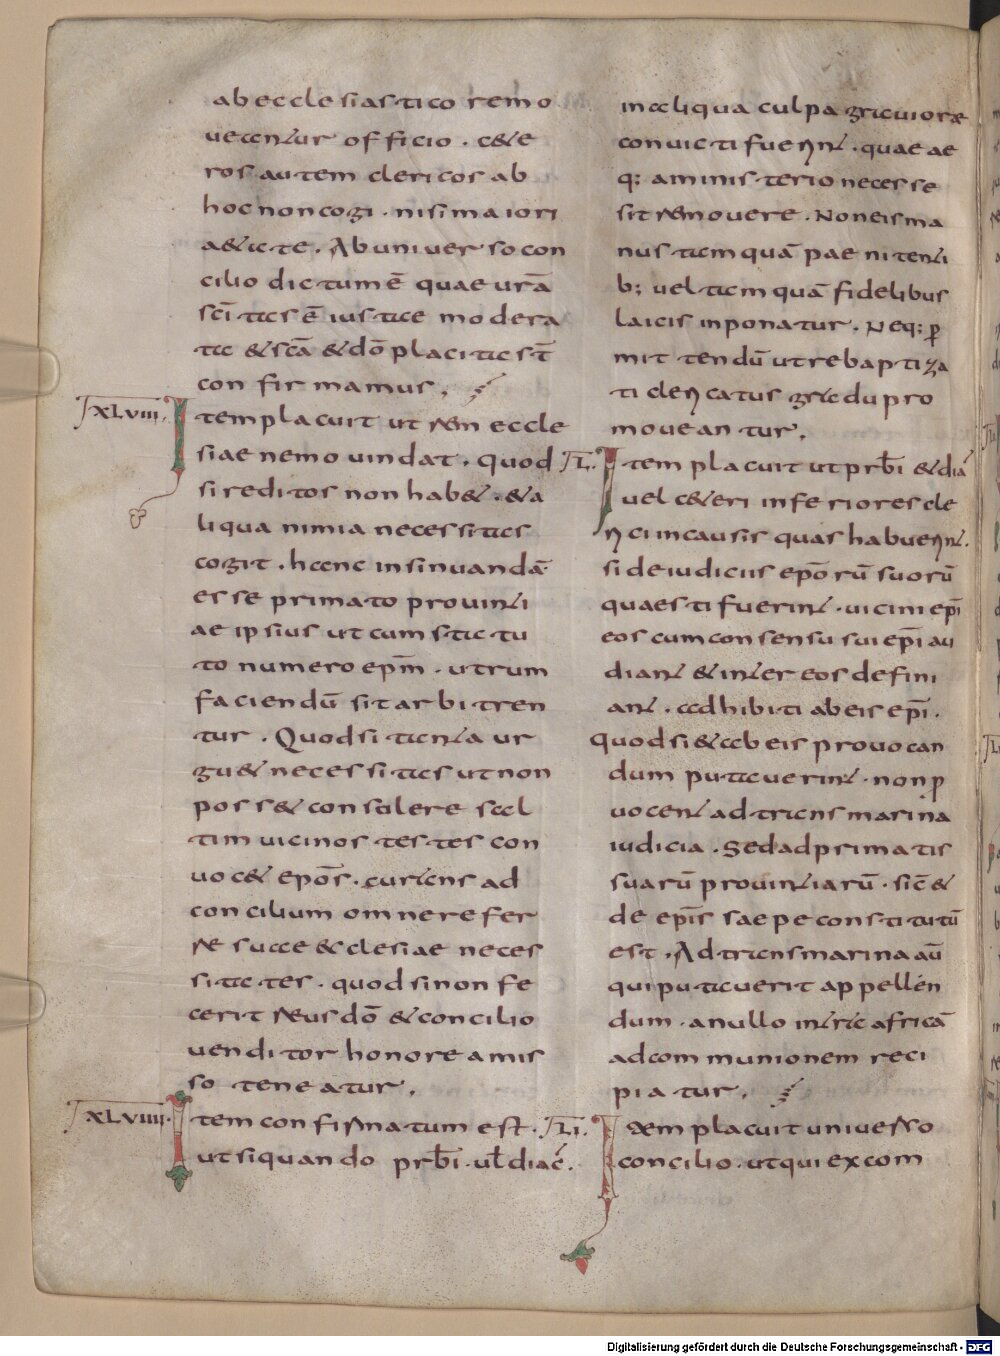 ab ecclesiastico remo
ueantur officio . cete
ros autem clericos ab
hoc non cogi . nisi maiori
aetate . Ab uniuerso con
cilio dictum ē quae urā
sc̄itas ē iustae modera
ta & sc̄ā & dō placita st̄
confirmamus .
XLVIII. Item placuit ut rem eccle
siae nemo uindat . quod
si reditos non hab& . & a
liqua nimia necessitas
cogit . hanc insinuandā
esse primato prouinti
ae ipsius ut cum statu
to numero epm̄ . utrum
faciendū sit arbitren
tur . Quod si tanta ur
gu& necessitas ut non
poss& consulere sal
tim uicinos testes con
uoc& epōs . curans ad
concilium omne refer
re suae ecclesiae neces
sitates . quod si non fe
cerit reus dō & concilio
uenditor honore amis
so teneatur .
XLVIIII. Item confirmatum est .
ut si quando prb̄i . ul̄ diac̄ .
in aliqua culpa grauiorae
conuicti fuerint . quae ae
q; a ministerio necesse
sit remouere . Non eis ma
nus tamquā paenitenti
b; uel tamquā fidelibus
laicis inponatur . Neq; p̄
mittendū ut rebaptiza
ti clericatus gradu pro
moueantur .
L. Item placuit ut prb̄i & diā
uel c&eri inferiores cle
rici in causis quas habuerint .
si de iudiciis epōrū suorū
quaesti fuerint . uicini epī
eos cum consensu sui epī au
diant & inter eos defini
ant . adhibiti ab eis epī .
quod si & ab eis prouocan
dum putauerint . non p
uocent ad transmarina
iudicia . Sed ad primatis
suarū prouintiarū . sic̄ &
de epīs saepe constitutū
est . Ad transmarina aū
qui putauerit appellen
dum . a nullo intra africā
ad communionem reci
piatur .
LI. Item placuit uniuerso
concilio . ut qui excom
Digitalisierung gefördert durch die Deutsche Forschungsgemeinschaft - DFG